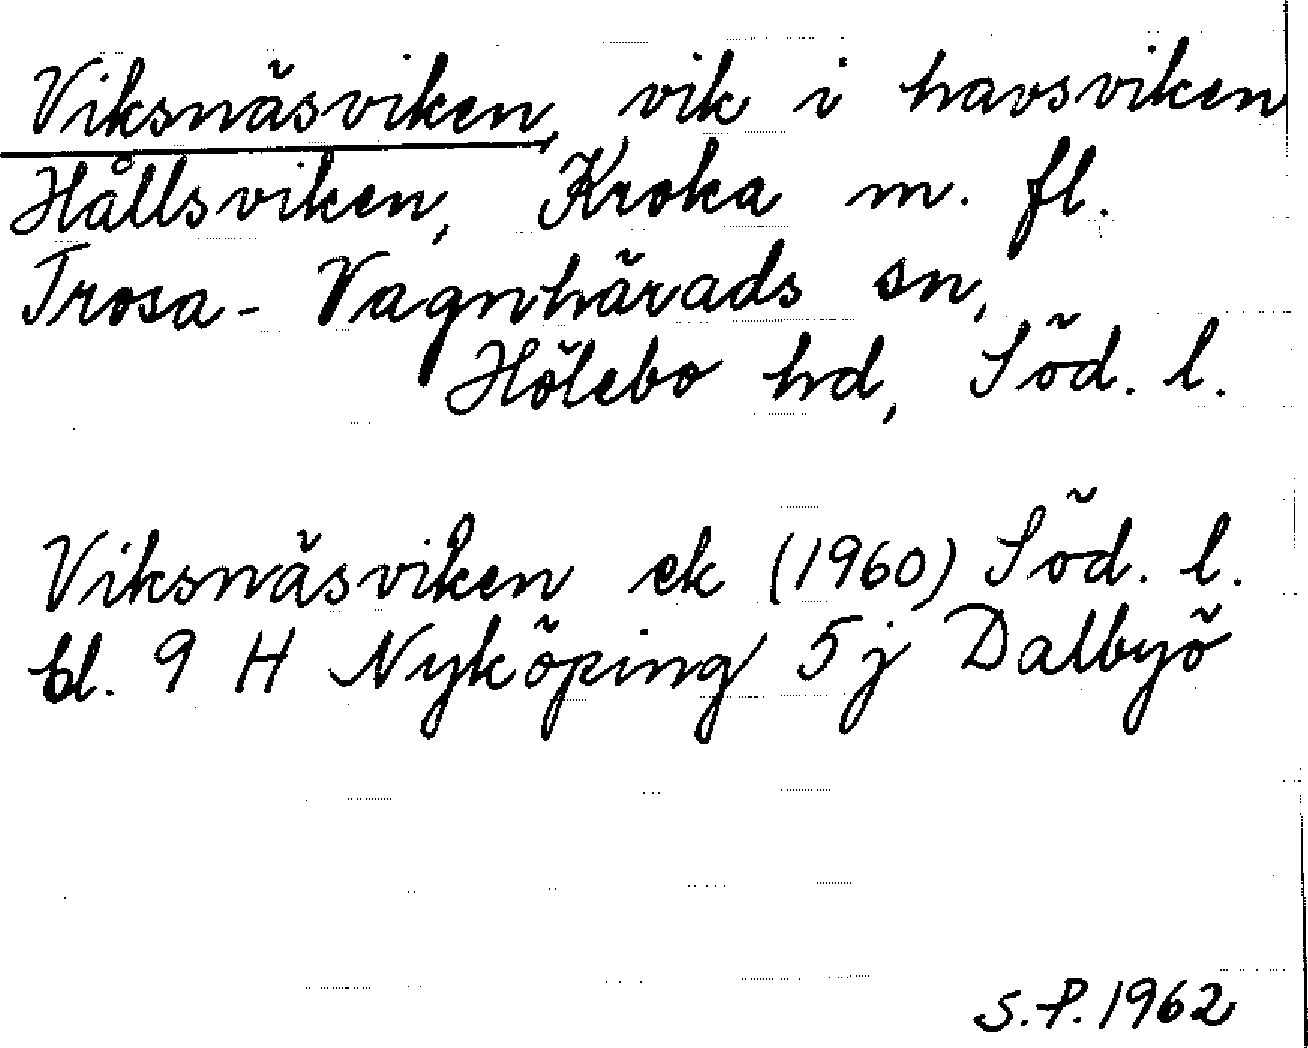 Viksnäsviken, vik i havsviken
Hållsviken, Kroka m. fl.
Trosa-Vagnhärads sn,
Hölebo hd, Söd. l.
Viksnäsviken ek (1960) Söd. l.
bl. 9 H Nyköping 5j Dalbyö
S.P. 1962